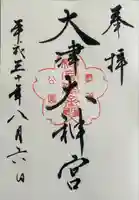 奉拝
大津大神宮
平成三十年八月六日